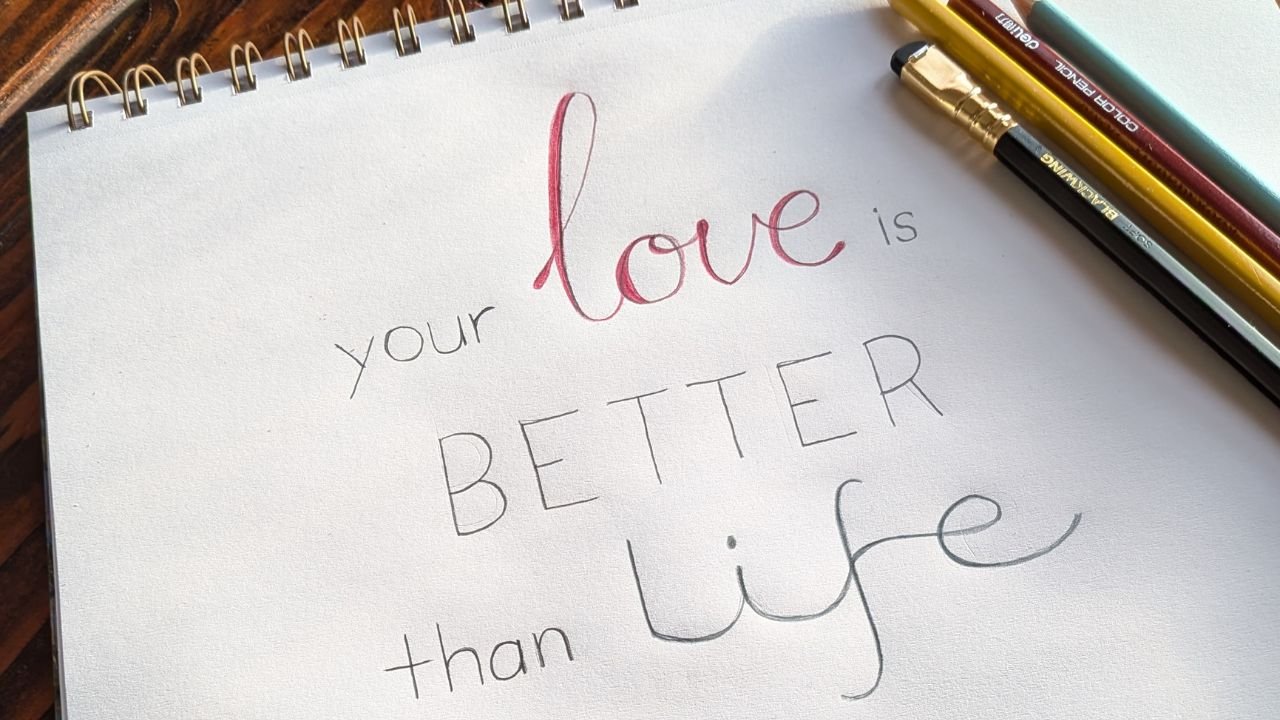 your love is
BETTER
than life
deli
COLOR PENCIL
BLACKWING